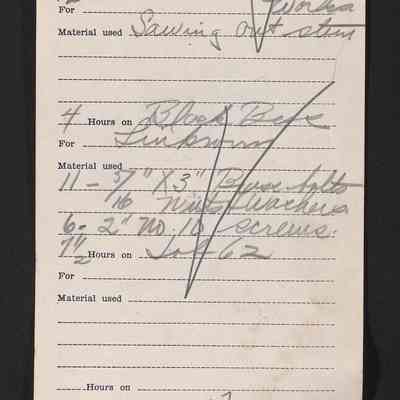 For Works
Material used Sawing out stem
4 Hours on Black Bess
For
Material used
11 - 5/16" x 3" Base bolts
Nuts Wachers
6 - 2" No. 10 screws.
7 1/2 Hours on Job 62
For
Material used
Hours on